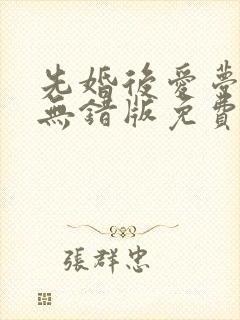 先婚後愛夢
無錯版免費
張群忠